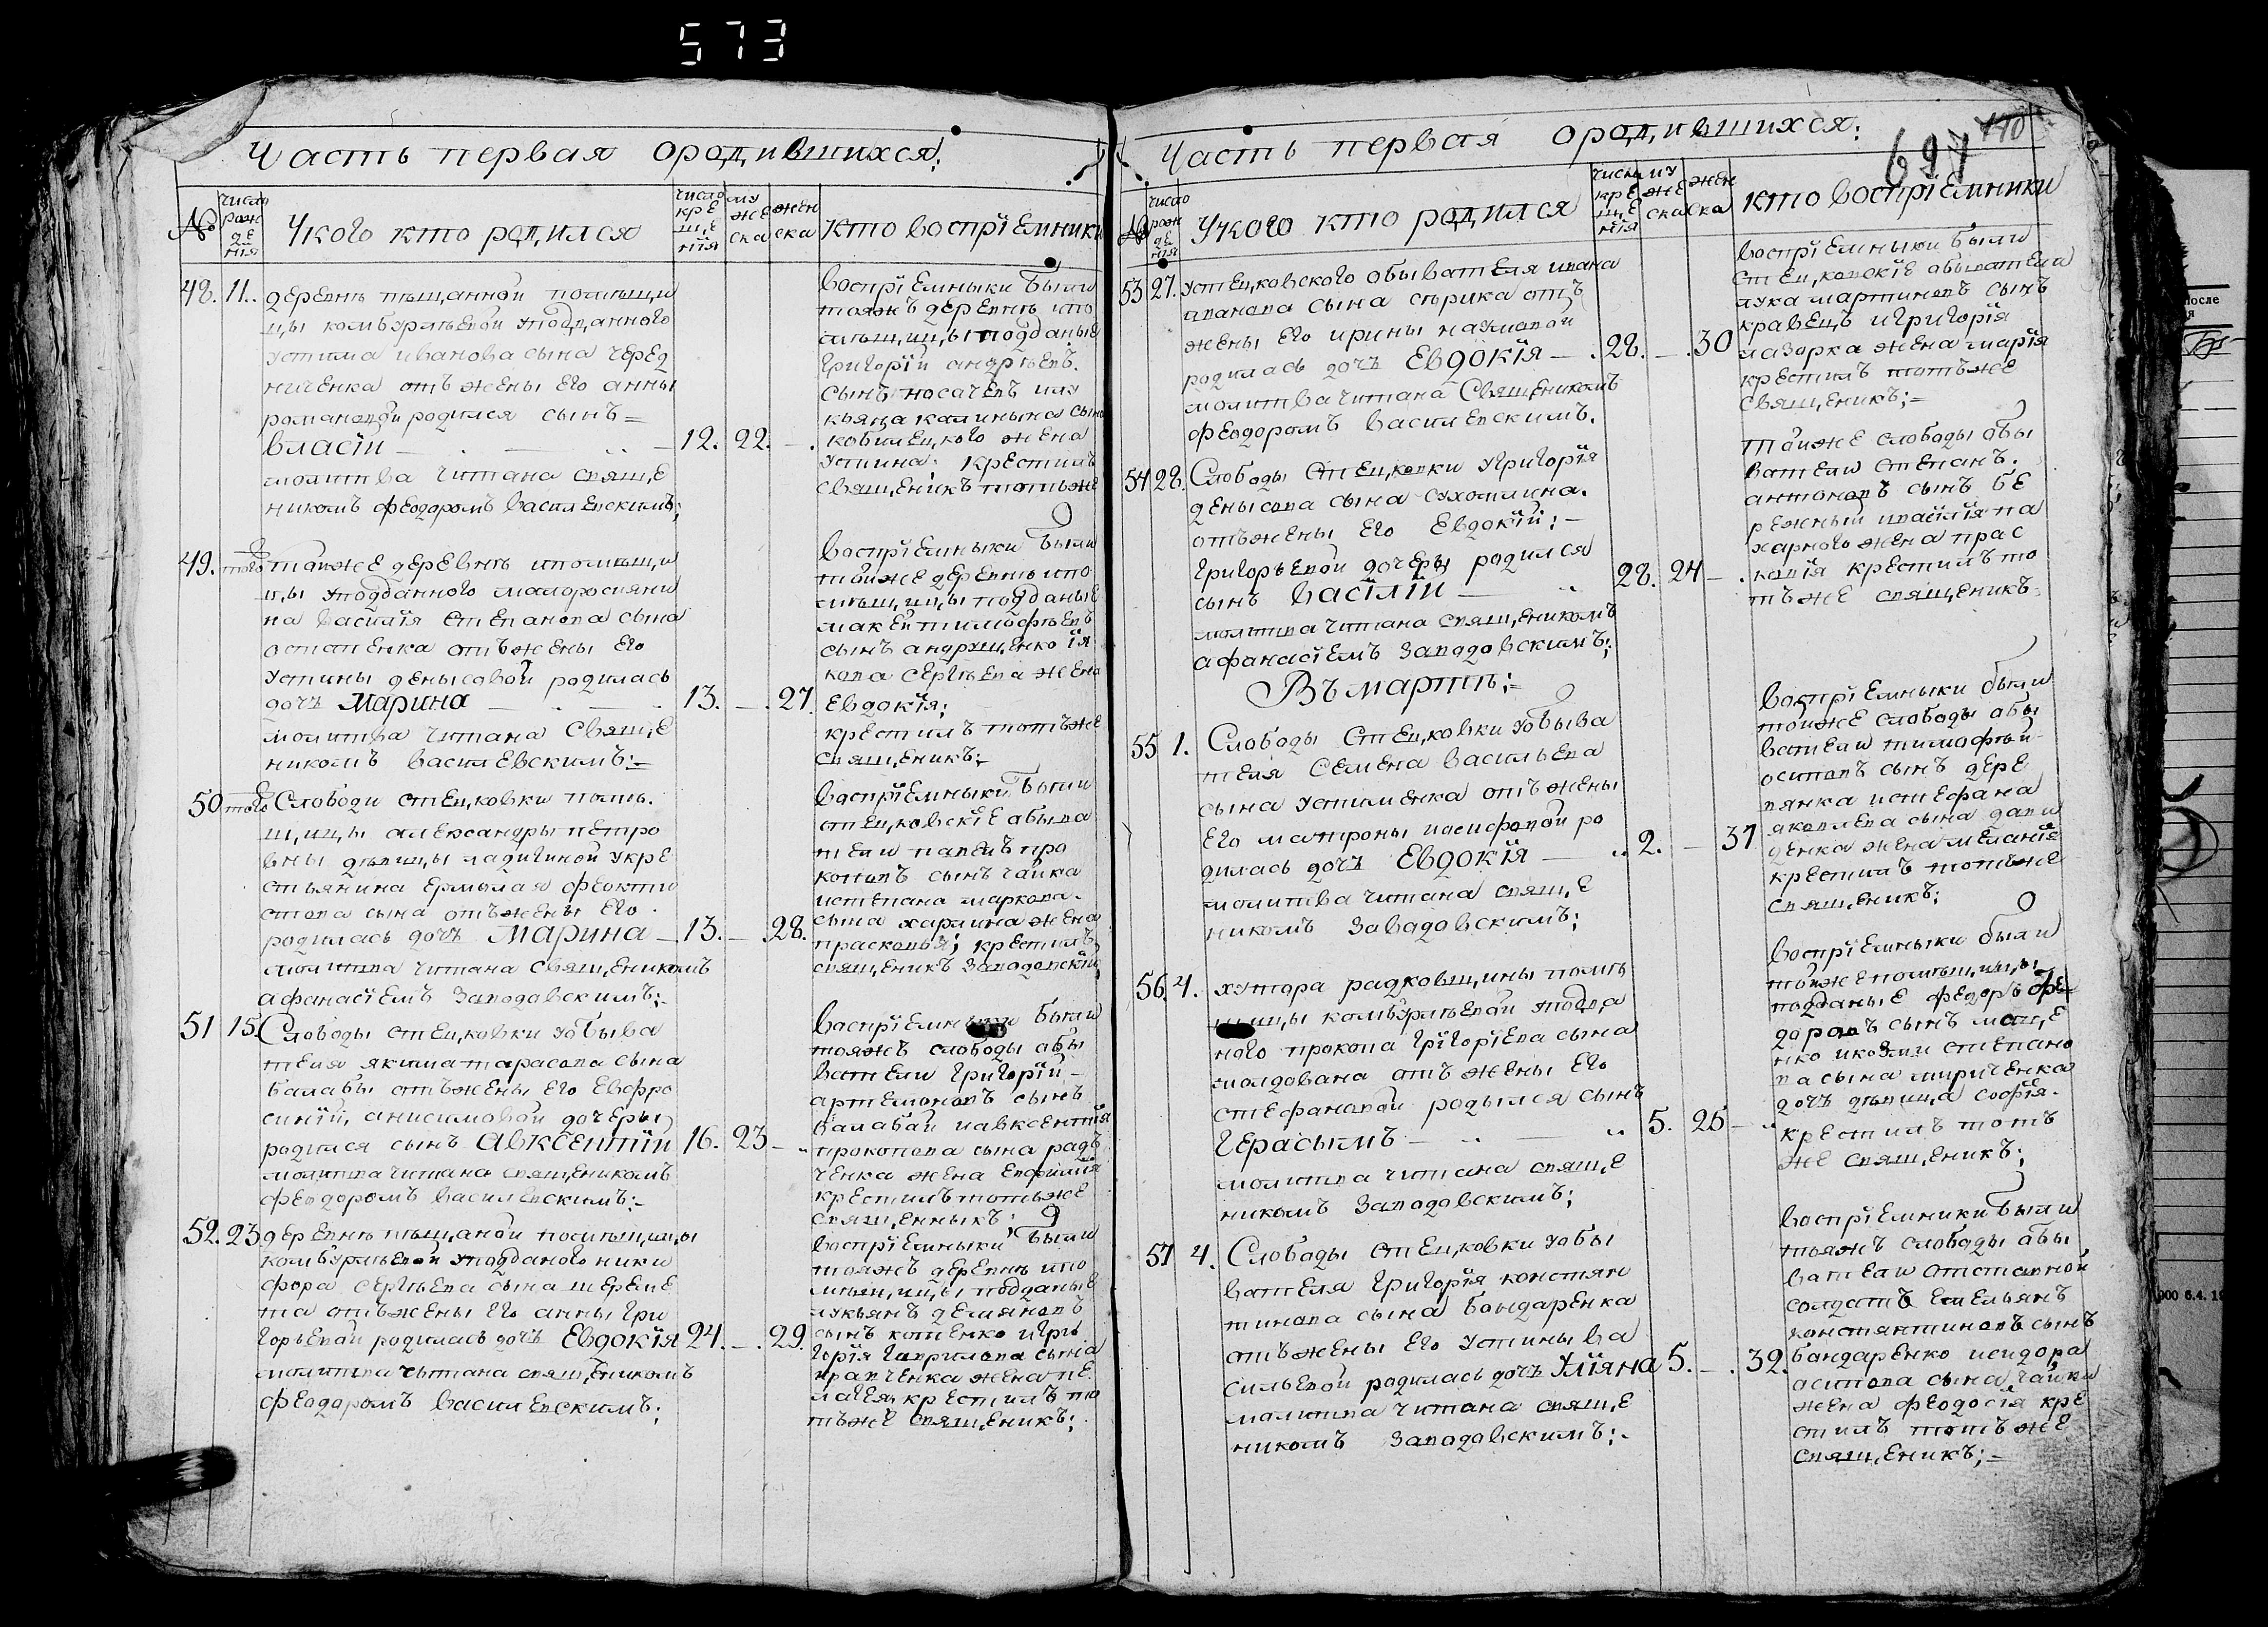 573
Часть первая ородившихся:
№
число рож де нїя
Укого кто родился
число кре ще нїя
му же ска
жен ска
кто воспрїемники
48. 11.
деревнѣ пѣщанной помѣщи
цы комбурлѣевой уподданного
устима иванова сына черед
ниченка отъ жены его анны
романовой родился сынъ
Власїй 12. 22.
молитва читана свяще
никомъ феодоромъ василевскимъ;
воспрїемныки были
тояжъ деревнѣ ипо
мѣщицы подданые
григорїй андрѣевъ
сынъ носачевъ илу
кьяна калинына сына
кобилецкого жена
устина; крестилъ
священикъ тотъже
49. того
тойже деревнѣ ипомѣщи
цы уподданного малоросияни
на василїя степанова сына
остапенка отъ жены его
устины денысовой родилась
дочь Марина 13. 27.
молитва читана свяще
никомъ василевскимъ:
воспрїемныки были
тойже деревнѣ ипо
мѣщицы подданые
макей тимофѣевъ
сынъ андрущенко їя
кова сергѣева жена
евдокїя;
крестилъ тотъже
священикъ;
50 того
Слободи стецковки помѣ
щицы александры петро
вны девицы ладигиной укре
стьянина ермолая феокти
стова сына отъ жены его
родилась дочь Марина 13. 28.
молитва читана священикомъ
афанасїемъ Заводовскимъ:
воспрїемныки были
стецковскїе обыва
тели павелъ про
коповъ сынъ чайка
истепана маркова
сына харлина жена
прасковья; крестилъ
священикъ Заводовскїй
51 15.
Слободы стецковки уобыва
теля якима тарасова сына
балабы отъ жены его Евфро
синїи, анисимовой дочеры
родился сынъ Авксентїй 16. 23
молитва читана священикомъ
феодоромъ василевскимъ:
воспрїемныки были
тояжъ слободы обы
ватели григорїй
артемоновъ сынъ
балабай иавксентїя
прокопова сына радъ
ченка жена Евфимїя
крестилъ тотъже
священныкъ;
52. 23
деревнѣ пѣщаной помѣщицы
комбурлѣевой уподданого ники
фора сергѣева сына шереме
та отъ жены его анны гри
горьевой родилась дочь Евдокїя 24. 29.
молитва чытана священикомъ
феодоромъ василевскимъ;
воспрїемныки были
тояжъ деревнѣ ипо
мѣщицы подданые
лукьянъ демяновъ
сынъ котенко игри
горїя гаврилова сына
кравченка жена пе
лагея; крестилъ то
тъже священикъ;
697 110
Часть первая ородившихся:
№
число рож де нїя
Укого кто родился
число кре ще нїя
му же ска
жен ска
кто воспрїемники
53 27.
устецковского обывателя ивана
иванова сына сѣрика отъ
жены его ирины наумовой
родилась дочь Евдокїя 28. 30
молитва читана Священикомъ
феодоромъ василевскимъ.
воспрїемныки были
стецковскїе обыватели
лука мартиновъ сынъ
кравецъ игригорїя
назорка жена марїя
крестилъ тотъже
священикъ;
54 28.
Слободы Стецковки угригорїя
денысова сына сухомлина.
отъ жены его Евдокїи;
григорьевой дочеры родился
сынъ Васїлїй 28. 24
молитва читана священикомъ
афанасїемъ Заводовскимъ;
тойже слободы обы
ватели степанъ
антоновъ сынъ бе
режный иваїлїя на
харного жена прас
ковїя крестилъ то
тъже священикъ
Въ мартѣ:
55 1.
Слободы Стецковки уобыва
теля Семена Васильева
сына устименка отъ жены
его матроны иосифовой ро
дилась дочь Евдокїя 2. 31
молитва читана свяще
никомъ Завадовскимъ;
воспрїемныки были
тойже слободы обы
ватели тимофѣй
осиповъ сынъ дере
вянка истефана
яковлева сына дави
денка жена меланїя
крестилъ тотъже
священикъ;
56 4.
хутора радковщины помѣ
щицы комбурлѣевой упадда
ного прокопа григорїева сына
молдована отъ жены его
стефановой родылся сынъ
герасымъ 5. 25
молитва читана свяще
никомъ Заводовскимъ;
воспрїемныки были
тойже помѣщицы
подданые федоръ фе
доровъ сынъ маще
нко икозми степано
ва сына мириченка
дочь девица софїя.
крестилъ тотъ
же священикъ;
57 4.
Слободы стецковки уобы
вателя григорїя констян
тинова сына бондаренка
отъ жены его устины ва
сильевой родилась дочь Улїяна 5. 32.
молитва читана свяще
никомъ Заводовскимъ;
воспрїемники были
тояжъ слободы обы
ватели отставной
солдатъ Емельянъ
констянтиновъ сынъ
бандаренко исидора
осипова сына чайки
жена феодосїя кре
стилъ тотъже
священикъ;